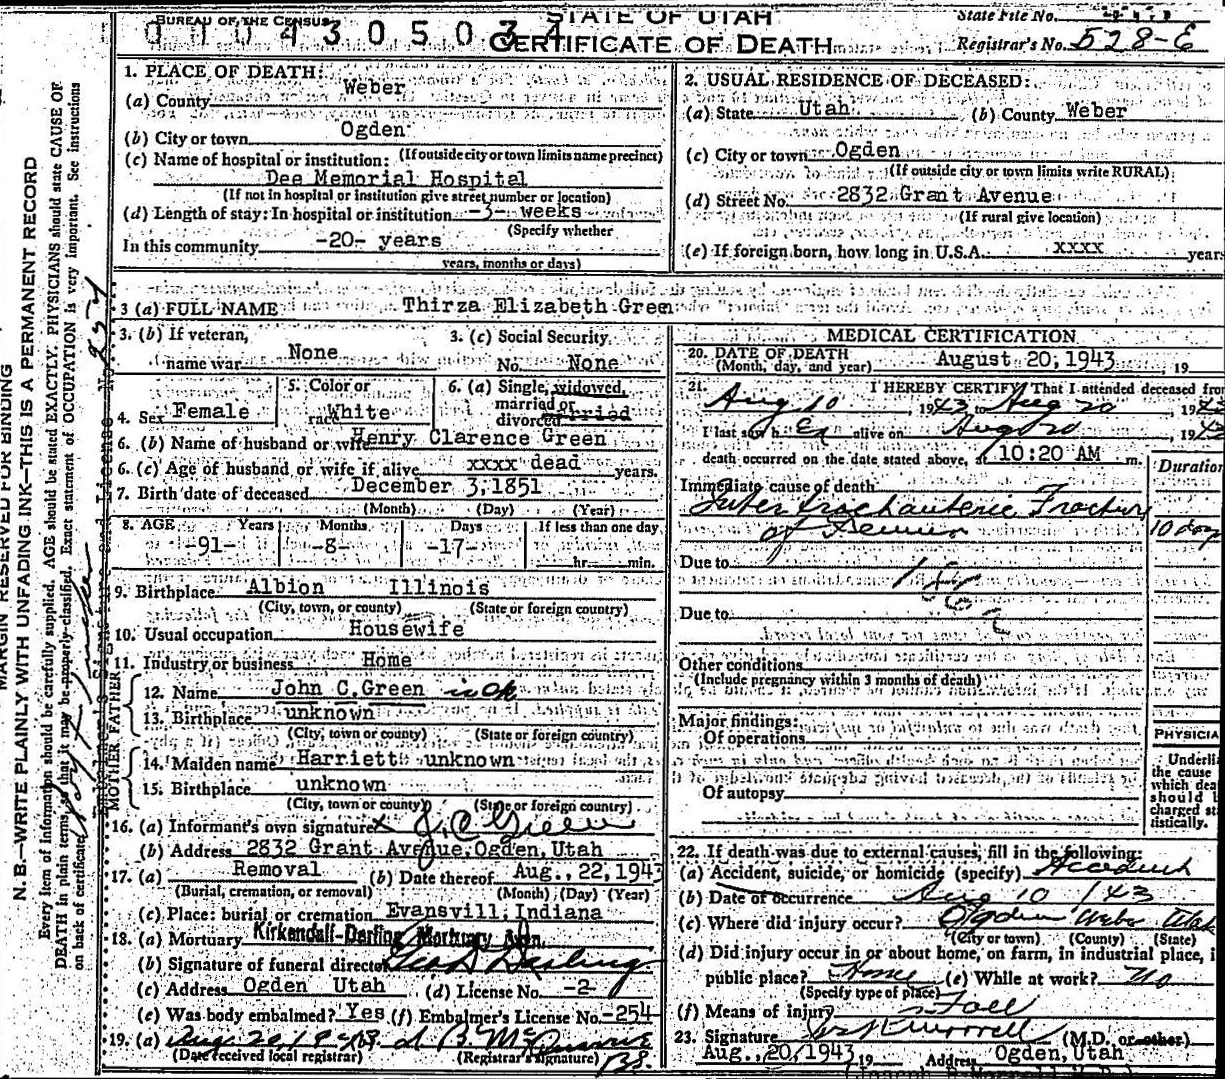 BUREAU OF THE CENSUS
STATE OF UTAH
CERTIFICATE OF DEATH
State File No.
Registrar's No. 528-E
1. PLACE OF DEATH:
(a) County Weber
(b) City or town Ogden
(If outside city or town limits name precinct)
(c) Name of hospital or institution:
Dee Memorial Hospital
(If not in hospital or institution give street number or location)
(d) Length of stay: In hospital or institution -3- weeks
(Specify whether
In this community -20- years
years, months or days)
2. USUAL RESIDENCE OF DECEASED:
(a) State Utah (b) County Weber
(c) City or town Ogden
(If outside city or town limits write RURAL)
(d) Street No. 2832 Grant Avenue
(If rural give location)
(e) If foreign born, how long in U.S.A. xxxx years
3 (a) FULL NAME Thirza Elizabeth Green
3. (b) If veteran,
name war None
3. (c) Social Security
No. None
4. Sex Female
5. Color or
race White
6. (a) Single, widowed,
married or
divorced married
6. (b) Name of husband or wife Henry Clarence Green
6. (c) Age of husband or wife if alive xxxx dead years.
7. Birth date of deceased December 3, 1851
(Month) (Day) (Year)
8. AGE Years Months Days If less than one day
-91- -8- -17- hr. min.
9. Birthplace Albion Illinois
(City, town, or county) (State or foreign country)
10. Usual occupation Housewife
11. Industry or business Home
FATHER
12. Name John C. Green is OK
13. Birthplace unknown
(City, town, or county) (State or foreign country)
MOTHER
14. Maiden name Harriett unknown
15. Birthplace unknown
(City, town or county) (State or foreign country)
16. (a) Informant's own signature x J. C. Green
(b) Address 2832 Grant Avenue, Ogden, Utah
17. (a) Removal (b) Date thereof Aug., 22, 1943
(Burial, cremation, or removal) (Month) (Day) (Year)
(c) Place: burial or cremation Evansvill, Indiana
18. (a) Mortuary Kirkendall-Darling Mortuary
(b) Signature of funeral director Geo S Darling
(c) Address Ogden Utah (d) License No. -2-
(e) Was body embalmed? Yes (f) Embalmer's License No. -254
19. (a)
(Date received local registrar) (Registrar's signature)
MEDICAL CERTIFICATION
20. DATE OF DEATH August 20, 1943 19
(Month, day, and year)
21. I HEREBY CERTIFY That I attended deceased from
Aug 10, 1943 to Aug 20, 1943
I last saw h Er alive on Aug 20, 1943
death occurred on the date stated above, at 10:20 AM m.
Duration
Immediate cause of death
Inter trochanteric Fracture
of Femur 10 days
Due to
Due to
Other conditions
(Include pregnancy within 3 months of death)
Major findings:
Of operations
Of autopsy
PHYSICIA
Underli
the cause
which dea
should b
charged sta
tistically.
22. If death was due to external causes, fill in the following:
(a) Accident, suicide, or homicide (specify) Accident
(b) Date of occurrence Aug 10 1943
(c) Where did injury occur? Ogden Weber Utah
(City or town) (County) (State)
(d) Did injury occur in or about home, on farm, in industrial place, i
public place? Home (e) While at work? No
(Specify type of place)
(f) Means of injury Fall
23. Signature (M.D. or other)
Aug., 20, 1943 19 Address Ogden, Utah
MARGIN RESERVED FOR BINDING
N. B.—WRITE PLAINLY WITH UNFADING INK—THIS IS A PERMANENT RECORD
Every item of information should be carefully supplied. AGE should be stated EXACTLY. PHYSICIANS should state CAUSE OF
DEATH in plain terms, so that it may be properly classified. Exact statement of OCCUPATION is very important. See instructions
on back of certificate.